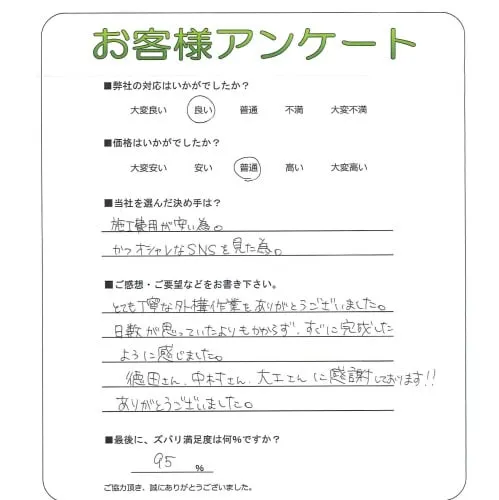 お客様アンケート
■弊社の対応はいかがでしたか？
大変良い 良い 普通 不満 大変不満
■価格はいかがでしたか？
大変安い 安い 普通 高い 大変高い
■当社を選んだ決め手は？
施工費用が安い為。
かつオシャレなSNSを見た為。
■ご感想・ご要望などをお書き下さい。
とても丁寧な外構作業をありがとうございました。
日数が思っていたよりもかからず、すぐに完成した
ように感じました。
徳田さん、中村さん、大工さんに感謝しております!!
ありがとうございました。
■最後に、ズバリ満足度は何%ですか？
95 %
ご協力頂き、誠にありがとうございました。